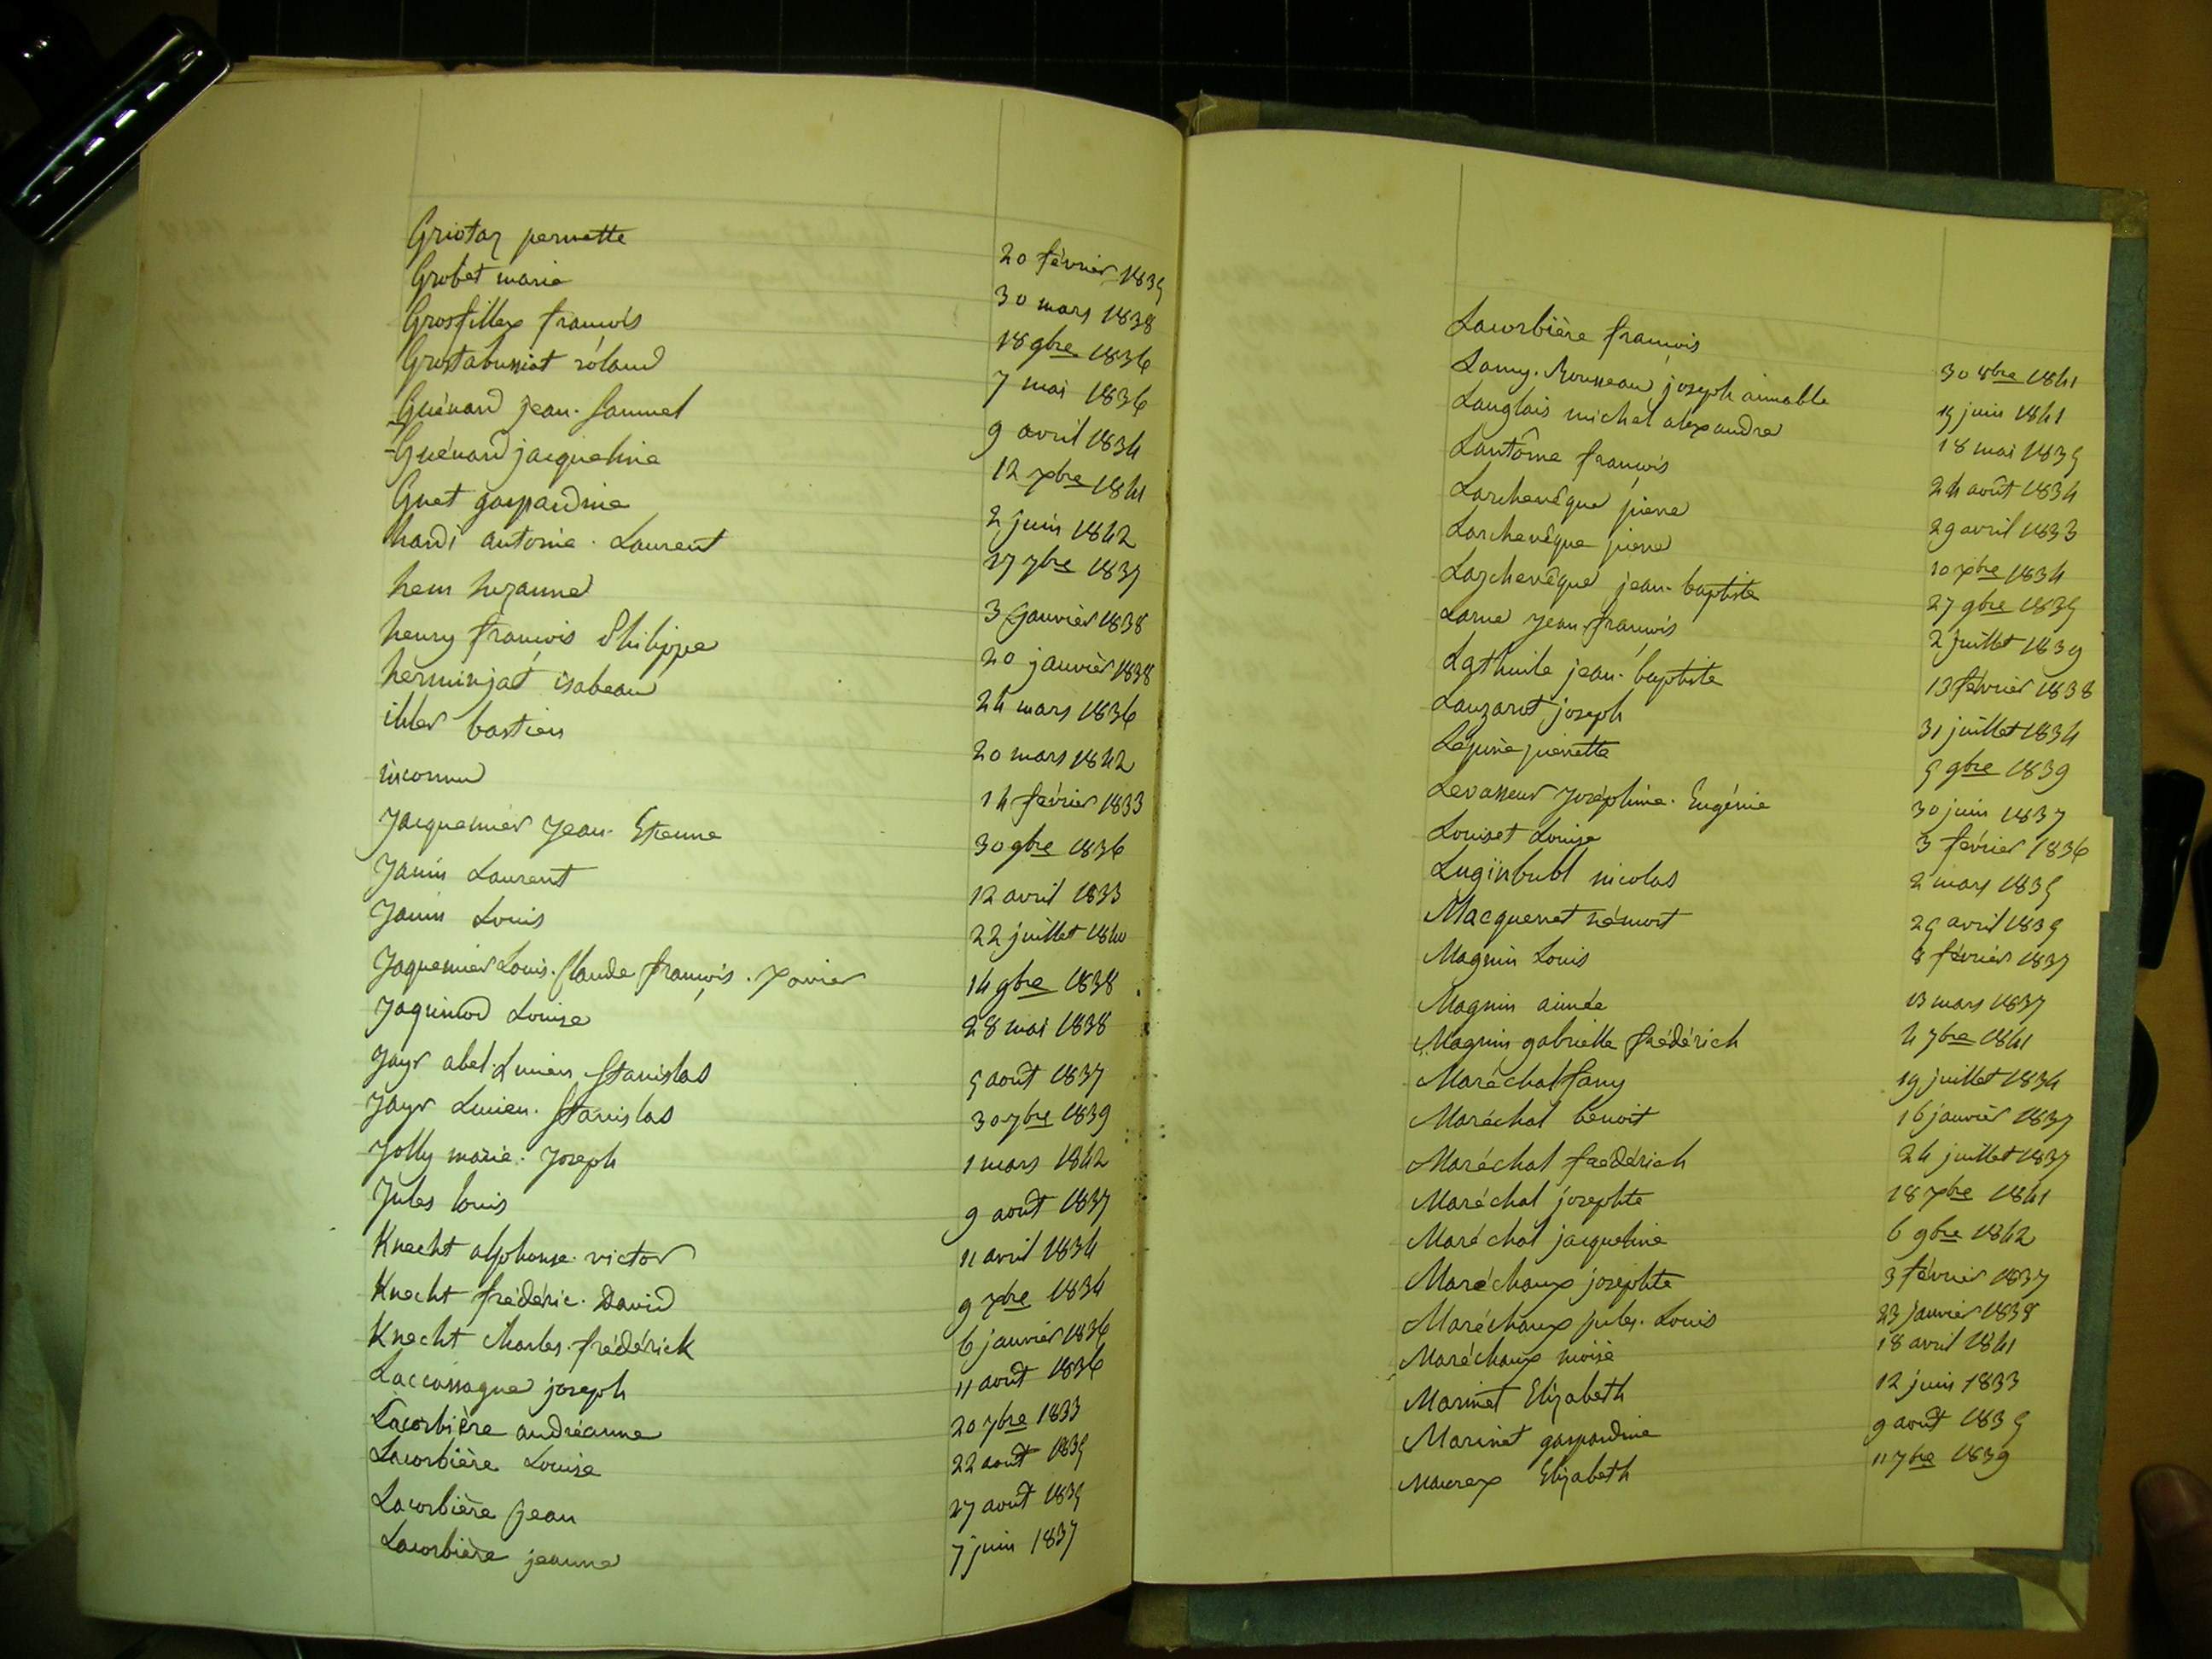 Griotaz pernette 20 février 1835
Grobet marie 30 mars 1838
Grosfillex françois 18 9bre 1836
Grostabussiat róland 7 mai 1836
Guénard jean. Samuel 9 avril 1834
Guénard jacqueline 12 xbre 1841
Guet gaspardine 2 juin 1842
hardi antoine. Laurent 27 7bre 1837
hem suzanne 3 janvier 1838
henry françois Philippe 20 janvier 1838
herminjat isabeau 24 mars 1836
ihler bastien 20 mars 1842
inconnu 14 février 1833
Jacquemier Jean. Etienne 30 9bre 1836
Janin Laurent 12 avril 1833
Janin Louis 22 juillet 1840
Jaquemier Louis. Claude françois. xavier 14 9bre 1838
Jaquinod Louise 28 mai 1838
Jayr abel. Lucien Stanislas 5 août 1837
Jayr Lucien. Stanislas 30 7bre 1839
Jolly marie. Joseph 1 mars 1842
Jules louis 9 août 1837
Knecht alphonse. victor 11 avril 1834
Knecht frédéric. David 9 xbre 1834
Knecht Charles. frédérick 6 janvier 1836
Laccassagne joseph 11 août 1836
Lacorbière andréanne 20 7bre 1833
Lacorbière Louise 22 août 1835
Lacorbière jean 27 août 1835
Lacorbière jeanne 7 juin 1837
Lacorbière françois 30 8bre 1841
Lamy. Rousseau joseph aimable 15 juin 1841
Langlais michel alexandre 18 mai 1835
Lantôme françois 24 août 1834
Larchevêque pierre 29 avril 1833
Larchevêque pierre 10 xbre 1834
Larchevêque jean. baptiste 27 9bre 1835
Larue Jean. françois 2 juillet 1839
Lathuile jean. baptiste 13 février 1838
Lauzarot joseph 31 juillet 1834
Lépine pierrette 5 9bre 1839
Levasseur Joséphine. Eugénie 30 juin 1837
Louiset Louise 3 février 1836
Luginbuhl nicolas 2 mars 1835
Macquenet némort 25 avril 1835
Magnin Louis 8 février 1837
Magnin aimée 13 mars 1837
Magnin gabrielle frédérich 4 7bre 1841
Maréchal fany 19 juillet 1834
Maréchal benoit 16 janvier 1837
Maréchal frédérich 24 juillet 1837
Maréchal josephte 18 xbre 1841
Maréchal jacqueline 6 9bre 1842
Maréchaux josephte 3 février 1837
Maréchaux jules. Louis 23 janvier 1838
Maréchaux moise 18 avril 1841
Marinet Elizabeth 12 juin 1833
Marinet gaspardine 9 août 1835
Maurex Elizabeth 11 7bre 1839